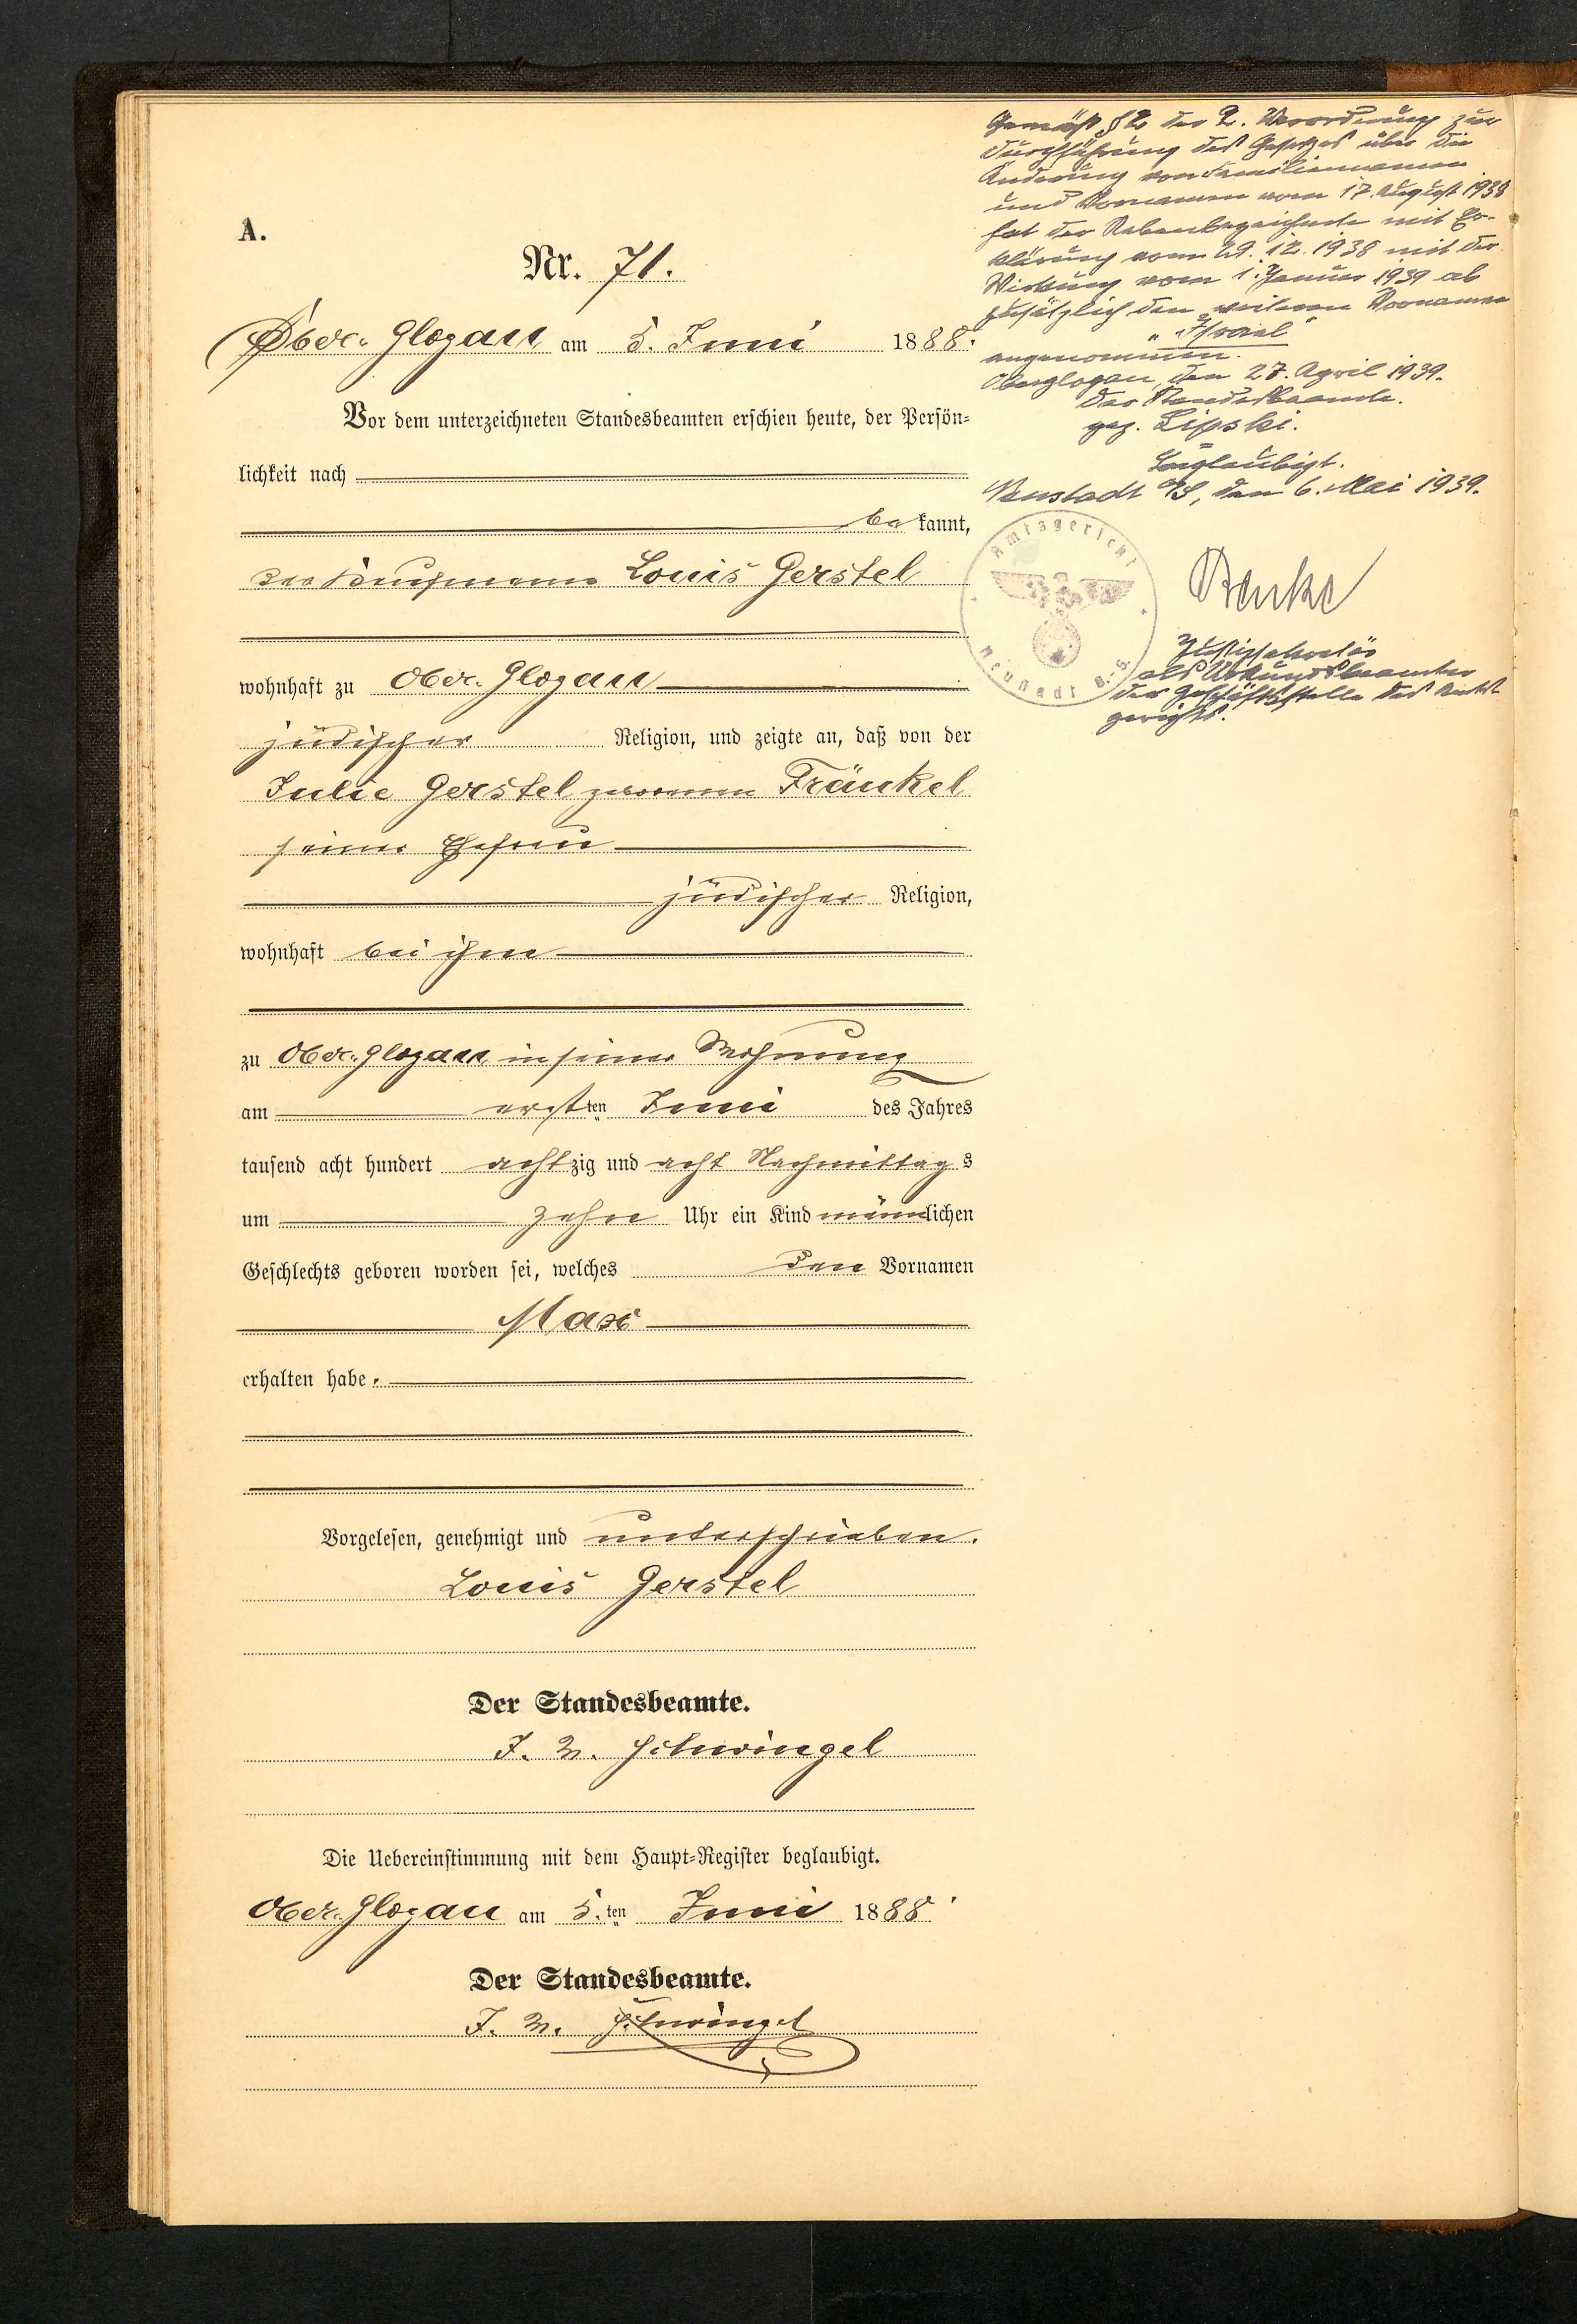 A.
Nr. 71.
Ober-Glogau am 5. Juni 1888.
Vor dem unterzeichneten Standesbeamten erschien heute, der Persön-
lichkeit nach
bekannt,
der Kaufmann Louis Gerstel
wohnhaft zu Ober-Glogau
jüdischer Religion, und zeigte an, daß von der
Julie Gerstel geborenen Fränkel
seiner Ehefrau
jüdischer Religion,
wohnhaft bei ihm
zu Ober-Glogau in seiner Wohnung
am ersten Juni des Jahres
tausend acht hundert achtzig und acht Nachmittags
um zehn Uhr ein Kind männlichen
Geschlechts geboren worden sei, welches den Vornamen
Max
erhalten habe.
Vorgelesen, genehmigt und unterschrieben.
Louis Gerstel
Der Standesbeamte.
J. V. Schwingel
Die Uebereinstimmung mit dem Haupt-Register beglaubigt.
Ober-Glogau am 5.ten Juni 1888.
Der Standesbeamte.
J. V. Schwingel
Gemäß § 2 der 2. Verordnung zur
Durchführung des Gesetzes über die
Änderung von Familiennamen
und Vornamen vom 17. August 1938
hat der Nebenbezeichnete mit Er-
klärung vom 29. 12. 1938 mit der
Wirkung vom 1. Januar 1939 ab
zusätzlich den weiteren Vornamen
"Israel"
angenommen.
Oberglogau, den 27. April 1939.
Der Standesbeamte.
gez. Lipski.
Beglaubigt.
Neustadt O/S, den 6. Mai 1939.
Amtsgericht
Neustadt O.-S.
Benke
Justizsekretär
als Urkundsbeamter
der Geschäftsstelle des Amts-
gerichts.